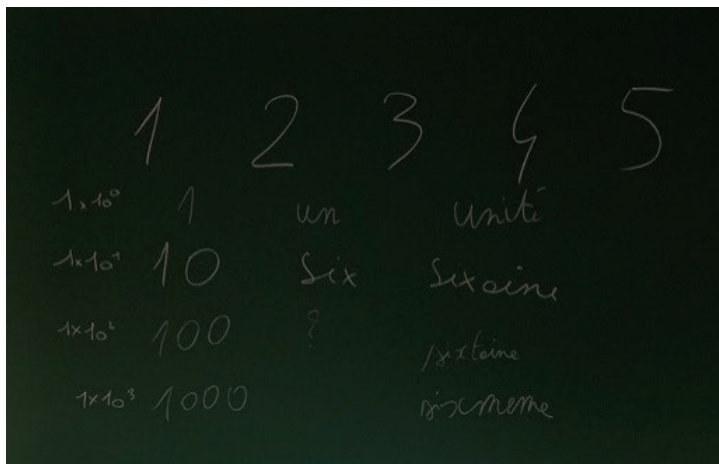 1 2 3 4 5
1×10⁰ 1 un unité
1×10¹ 10 six sixaine
1×10² 100 ? sixtaine
1×10³ 1000